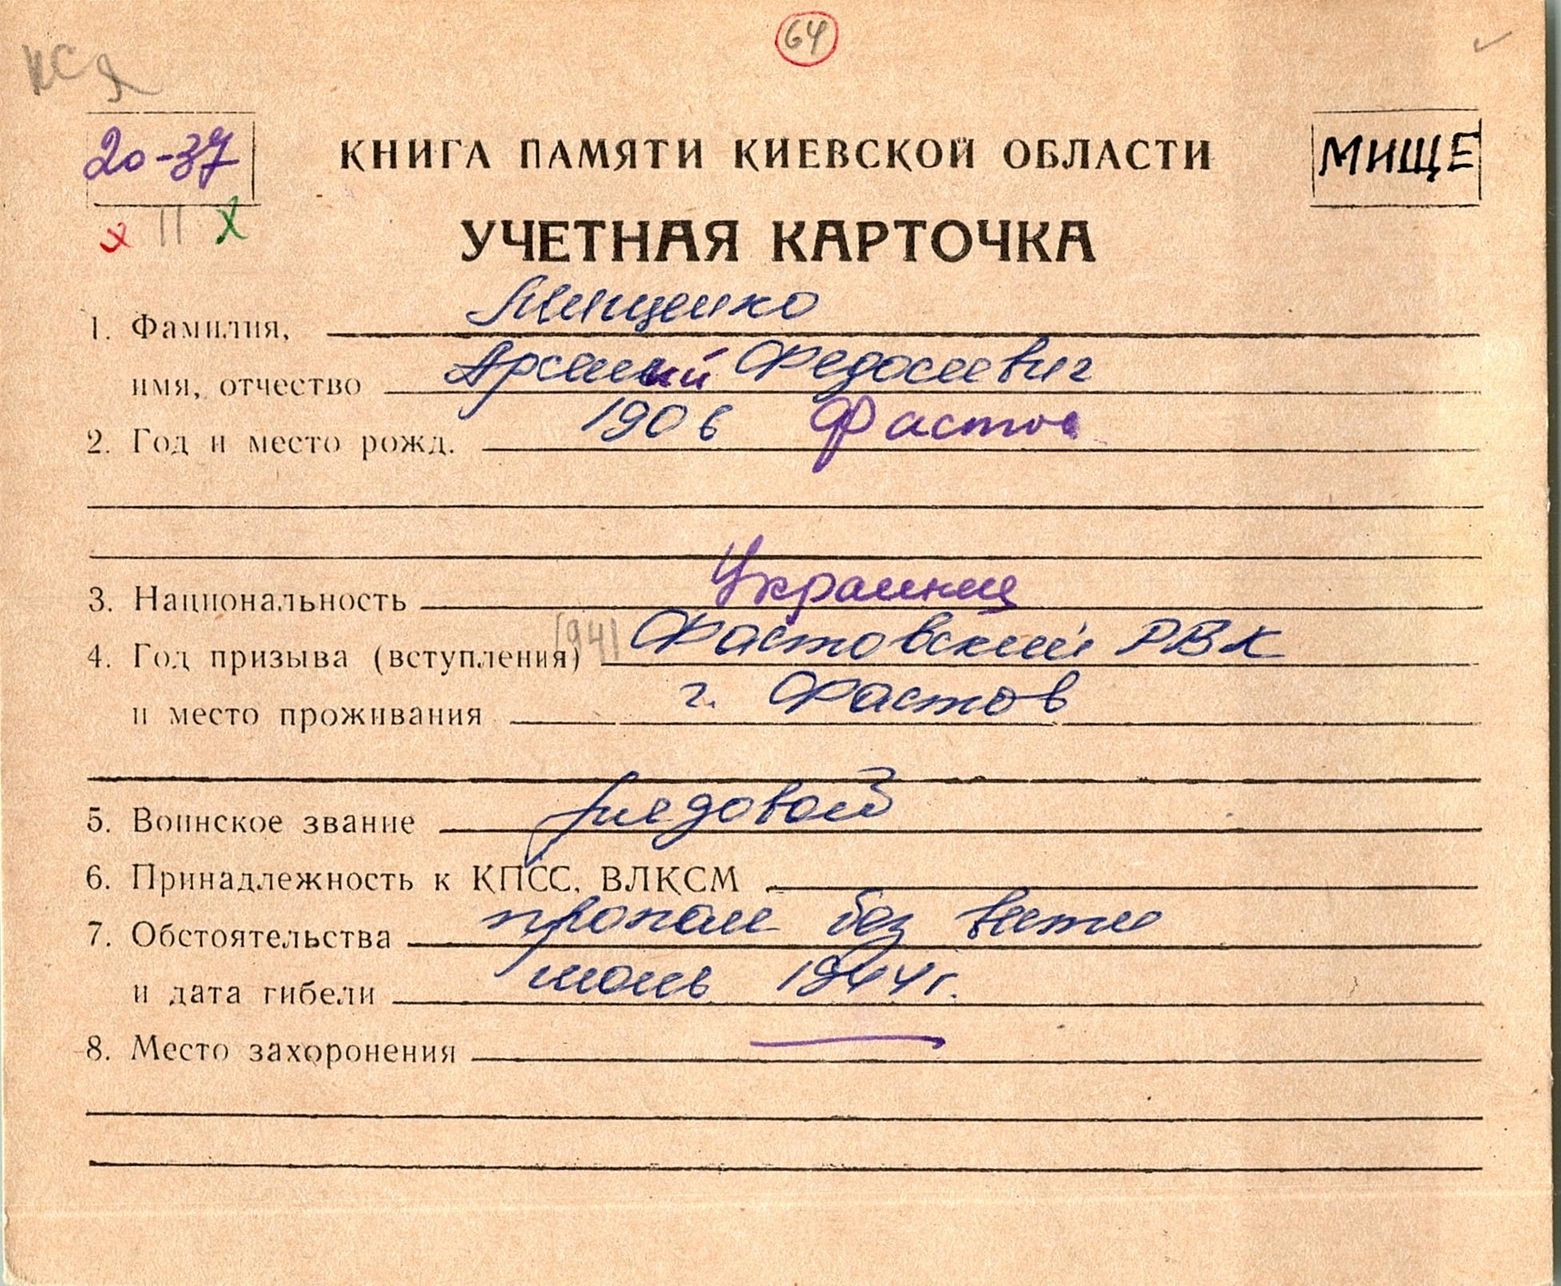 64
20-37
КНИГА ПАМЯТИ КИЕВСКОЙ ОБЛАСТИ
МИЩЕ
х II х
УЧЕТНАЯ КАРТОЧКА
1. Фамилия, Мищенко
имя, отчество Арсений Федосеевич
2. Год и место рожд. 1906 Фастов
3. Национальность Украинец
4. Год призыва (вступления) 1941 Фастовский РВК
и место проживания г. Фастов
5. Воинское звание рядовой
6. Принадлежность к КПСС, ВЛКСМ
7. Обстоятельства пропал без вести
и дата гибели июнь 1944г.
8. Место захоронения —